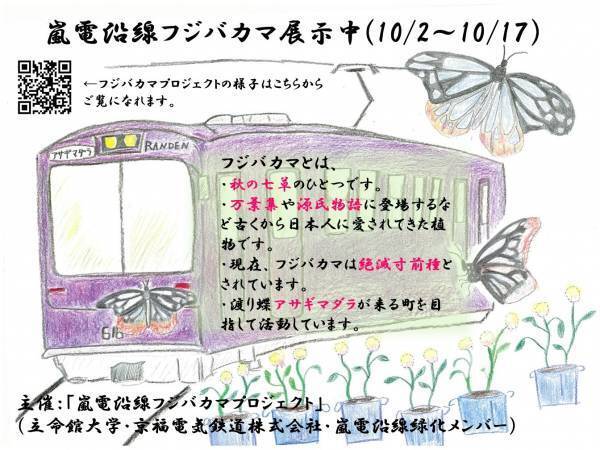 嵐電沿線フジバカマ展示中(10/2～10/17)
←フジバカマプロジェクトの様子はこちらから
ご覧になれます。
アサギマダラ
RANDEN
フジバカマとは、
・秋の七草のひとつです。
・万葉集や源氏物語に登場するな
ど古くから日本人に愛されてきた植
物です。
・現在、フジバカマは絶滅寸前種と
されています。
・渡り蝶アサギマダラが来る町を目
指して活動しています。
616
主催:「嵐電沿線フジバカマプロジェクト」
(立命館大学・京福電気鉄道株式会社・嵐電沿線緑化メンバー)